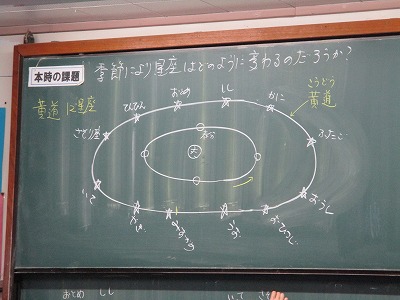 本時の課題
季節により星座はどのように変わるのだろうか?
黄道12星座
こうどう
黄道
おとめ
しし
かに
てんびん
ふたご
さそり座
太
いて
おうし
やぎ
みずがめ
うお
おひつじ
おとめ しし
いて